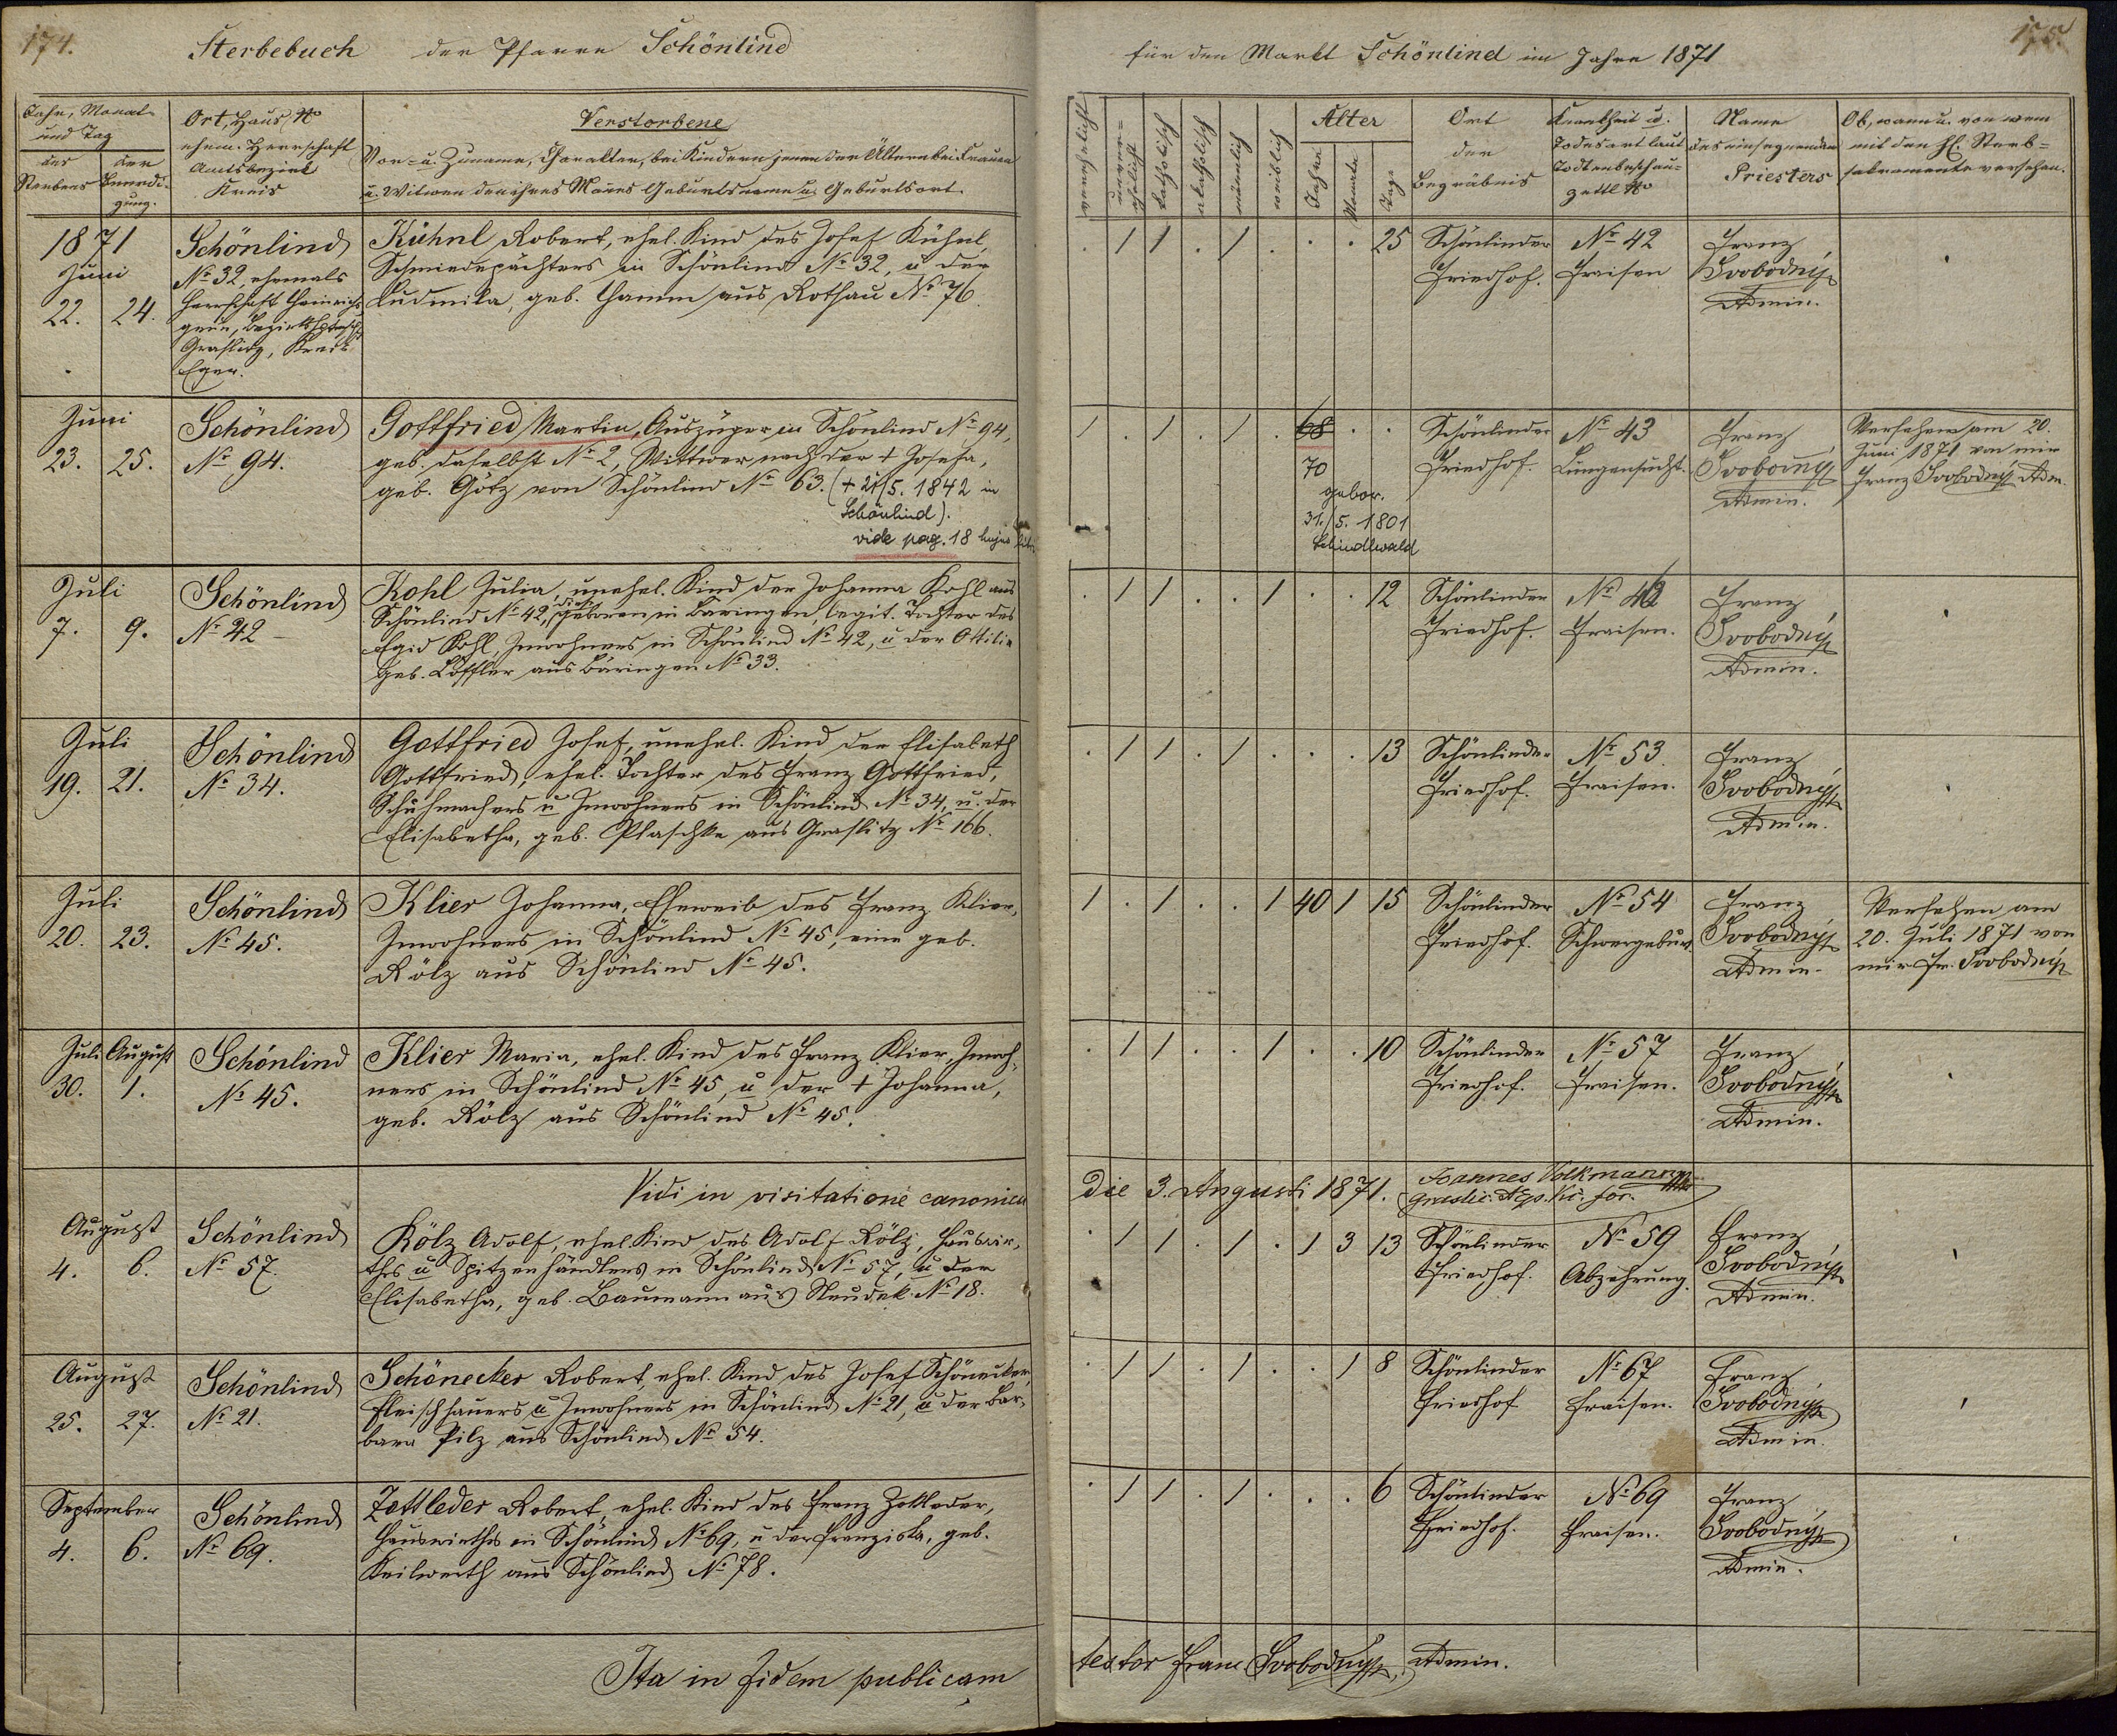 174.
Sterbebuch der Pfarre Schönlind
Jahr, Monat
und Tag
des
Sterbens
der
Beerdi-
gung.
Ort, Haus No
ehem. Herrschaft
Amtsbezirk
Kreis
Verstorbene
Vor- u. Zuname, Charakter, bei Kindern jenen der Ältern bei Frauen
u. Witwen den ihres Mañes Geburtsname u. Geburtsort.
1871
Juni
22. 24.
Schönlind
No 32, ehemals
Herrschaft Heinrichs-
grün, Bezirkshptmsch.
Graslitz, Kreis
Eger.
Kühnl Robert, ehel. Kind des Josef Kühnl,
Schmiedepächters in Schönlind No 32, u der
Ludmila, geb. Hamm aus Rothau No 76.
Juni
23. 25.
Schönlind
No 94.
Gottfried Martin, Auszüger in Schönlind No 94,
geb. daselbst No 2, Wittwer nach der + Josefa,
geb. Götz von Schönlind No 63. (+ 21/5. 1842 in
Schönlind).
vide pag. 18 hujus libri
Juli
7. 9.
Schönlind
No 42 -
Kohl Julia, unehel. Kind der Johanna Kohl aus
Schönlind No 42, geboren in Bäringen, legit. Tochter des
Egid Kohl, Inwohners in Schönlind No 42, u der Ottilia
geb. Löffler aus Bäringen No 33.
Juli
19. 21.
Schönlind
No 34.
Gottfried Josef, unehel. Kind der Elisabeth
Gottfried, ehel. Tochter des Franz Gottfried,
Schuhmachers u Inwohners in Schönlind No 34, u. der
Elisabetha, geb. Plaschka aus Graslitz No 166.
Juli
20. 23.
Schönlind
No 45.
Klier Johanna, Eheweib des Franz Klier,
Inwohners in Schönlind No 45, eine geb.
Rölz aus Schönlind No 45.
Juli August
30. 1.
Schönlind
No 45.
Klier Maria, ehel. Kind des Franz Klier, Inwoh-
ners in Schönlind No 45, u der + Johanna,
geb. Rölz aus Schönlind No 45.
Vidi in visitatione canonica
August
4. 6.
Schönlind
No 57.
Rölz Adolf, ehel. Kind des Adolf Rölz, Hauswir-
thes u Spitzenhändlers in Schönlind No 57, u der
Elisabetha, geb. Baumann aus Neudek No 18.
August
25. 27.
Schönlind
No 21.
Schönecker Robert, ehel. Kind des Josef Schönecker,
Fleischhauers u Inwohners in Schönlind No 21, u der Bar-
bara Pilz aus Schönlind No 54.
September
4. 6.
Schönlind
No 69.
Zettleder Robert, ehel. Kind des Franz Zettleder,
Hauswirths in Schönlind No 69, u der Franziska, geb.
Keilwerth aus Schönlind No 78.
Ita in fidem publicam
175.
für den Markt Schönlind im Jahre 1871
verehelicht
unver=
ehelicht
katholisch
akatholisch
männlich
weiblich
Alter
Jahre
Monate
Tage
Ort
der
Begräbnis
Krankheit u.
Todesart laut
Todtenbeschau-
zettl No
Name
des einsegnenden
Priesters
Ob, wann u. von wem
mit den hl. Sterb-
sakramente versehen.
. 1 1 . 1 . . . 25
Schönlinder
Friedhof.
No 42
Fraisen
Franz
Svobodný
Admin.
1 . 1 . 1 . 68 . .
70
gebor.
31./5. 1801
Schindlwald
Schönlinder
Friedhof.
No 43
Lungensucht.
Franz
Svobodný
Admin.
Versehen am 20.
Juni 1871 von mir
Franz Svobodný Adm.
. 1 1 . . 1 . . 12
Schönlinder
Friedhof.
Fraisen.
Franz
Svobodný
Admin.
. 1 1 . 1 . . . 13
Schönlinder
Friedhof.
No 53.
Fraisen.
Franz
Svobodný
Admin.
1 . 1 . . 1 40 1 15
Schönlinder
Friedhof.
No 54
Schwergeburt
Franz
Svobodný
Admin.
Versehen am
20. Juli 1871 von
mir Fr. Svobodný
. 1 1 . . 1 . . 10
Schönlinder
Friedhof.
No 57
Fraisen.
Franz
Svobodný
Admin.
die 3. Augusti 1871. Joannes Volkmann
. 1 1 . 1 . 1 3 13
Schönlinder
Friedhof.
No 59
Abzehrung.
Franz
Svobodný
Admin.
. 1 1 . 1 . . 1 8
Schönlinder
Friedhof
No 67
Fraisen.
Franz
Svobodný
Admin.
. 1 1 . 1 . . . 6
Schönlinder
Friedhof.
No 69
Fraisen.
Franz
Svobodný
Admin.
testor Franc. Svobodný, Admin.